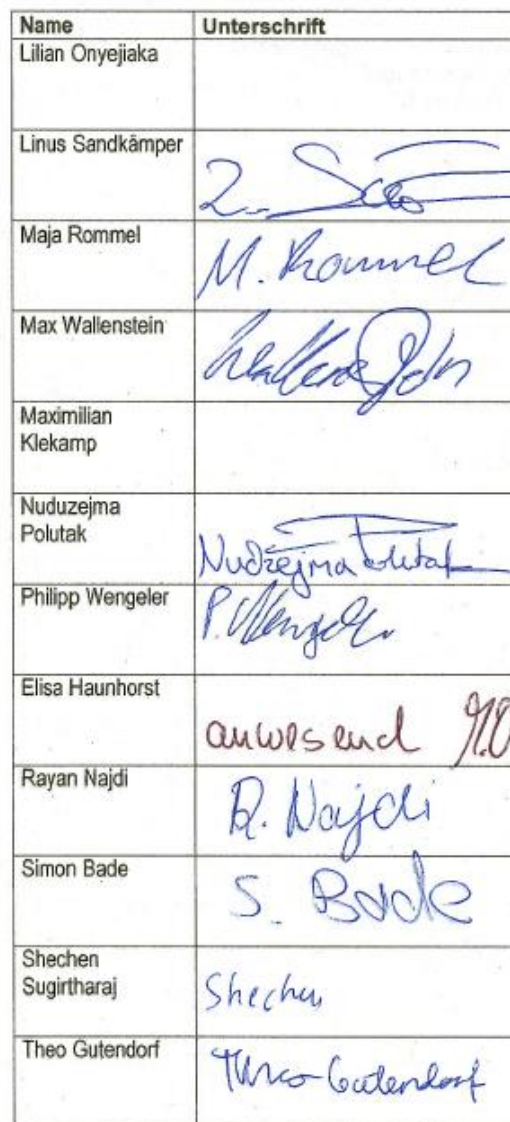 Name Unterschrift
Lilian Onyejiaka
Linus Sandkämper
Maja Rommel M. Rommel
Max Wallenstein
Maximilian
Klekamp
Nuduzejma
Polutak Nudžejma Polutak
Philipp Wengeler P. Wengeler
Elisa Haunhorst anwesend
Rayan Najdi R. Najdi
Simon Bade S. Bade
Shechen
Sugirtharaj Shechen
Theo Gutendorf Theo Gutendorf